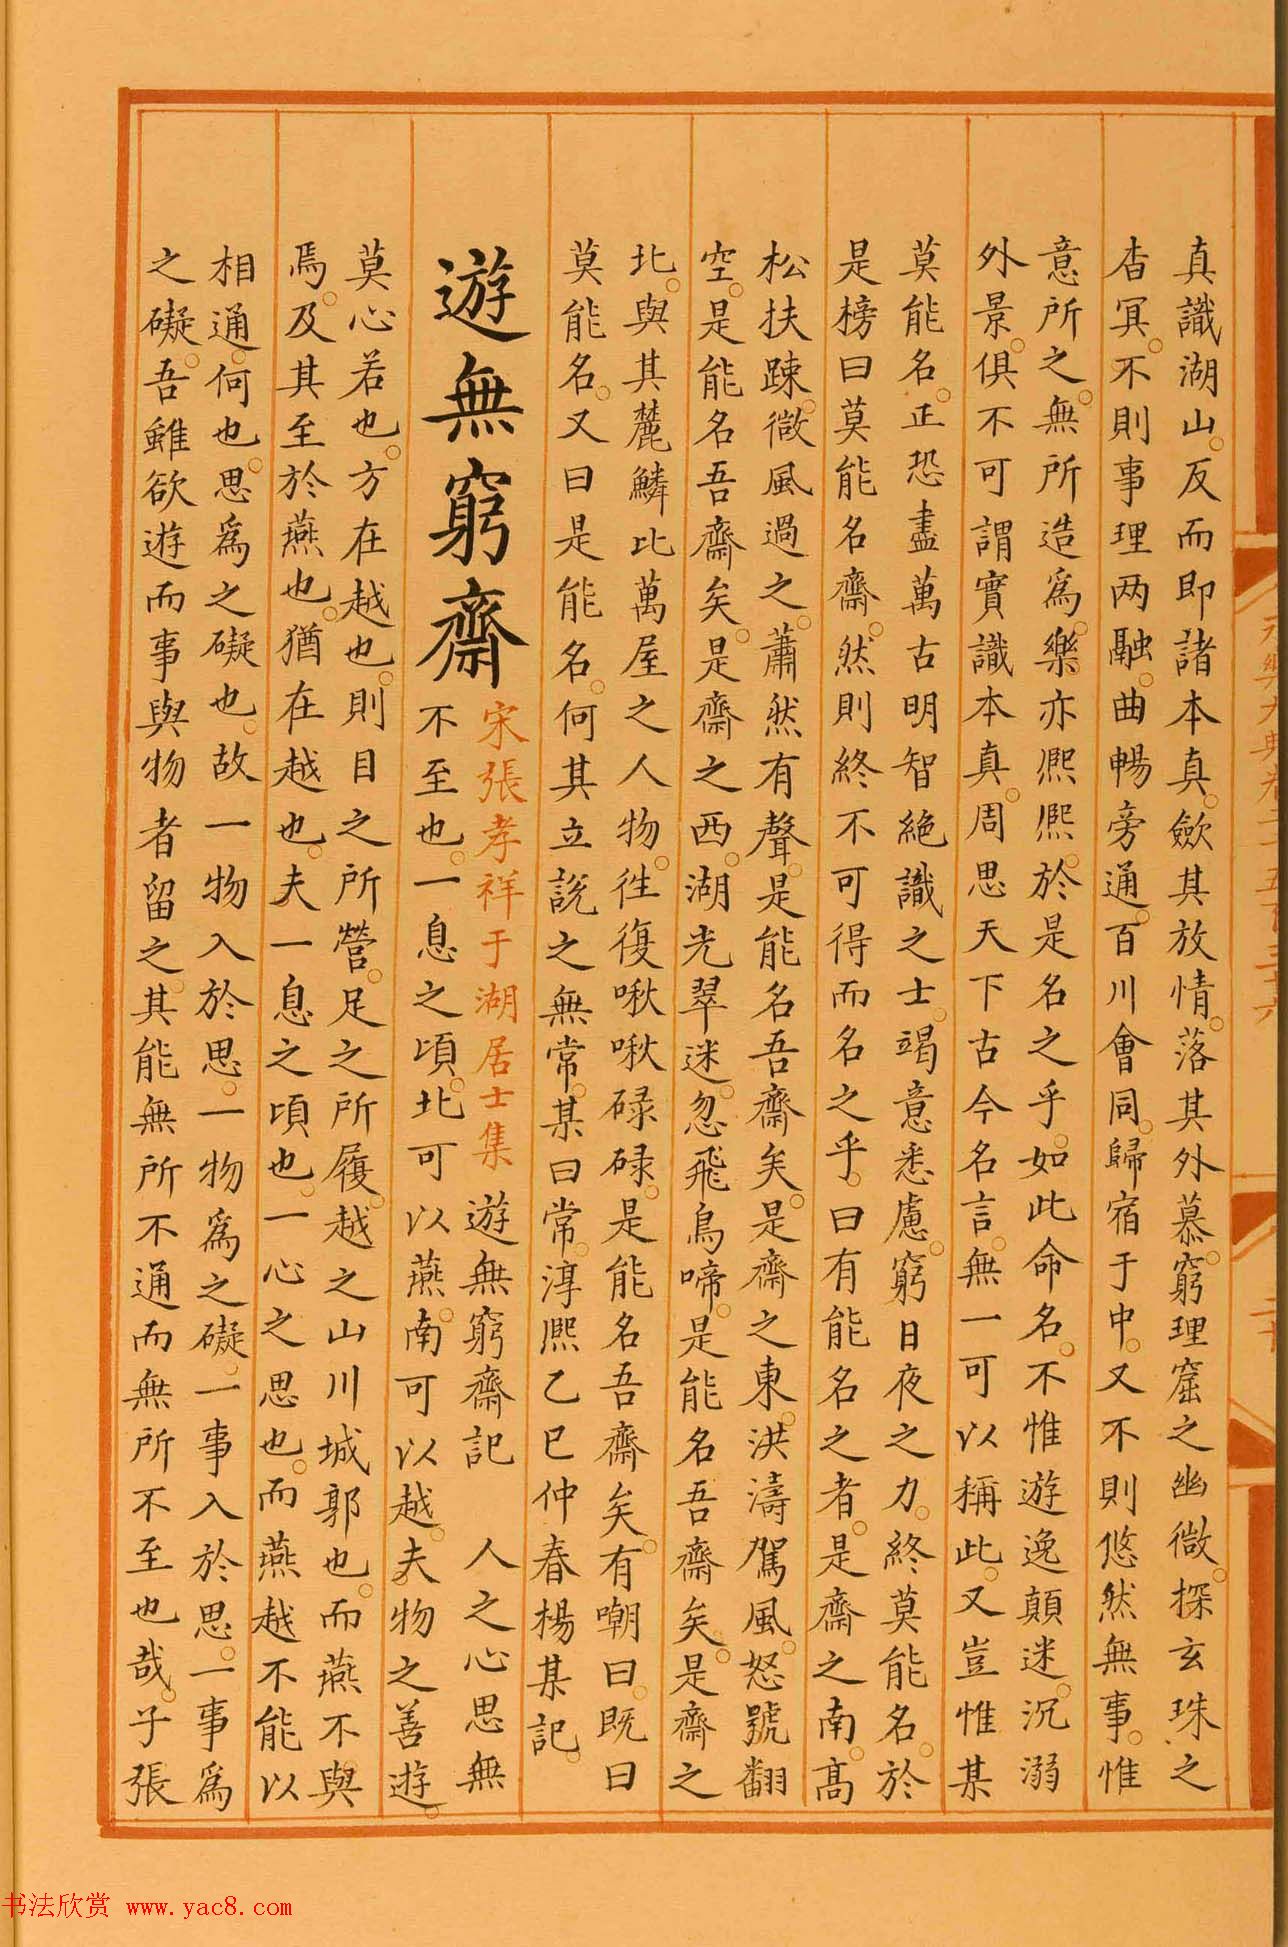 真識湖山反而即諸本真歛其放情落其外慕窮理窟之幽微探玄珠之
杳冥不則事理两融曲暢旁通百川會同歸宿于中又不則悠然無事惟
意所之無所造為樂亦熈熈於是名之乎如此命名不惟遊逸顛迷沉溺
外景俱不可謂實識本真周思天下古今名言無一可以稱此又豈惟某
莫能名正恐盡萬古明智絶識之士竭意悉慮窮日夜之力終莫能名於
是榜曰莫能名齋然則終不可得而名之乎曰有能名之者是齋之南髙
松扶踈微風過之蕭然有聲是能名吾齋矣是齋之東洪濤駕風怒號翻
空是能名吾齋矣是齋之西湖光翠迷忽飛鳥啼是能名吾齋矣是齋之
北與其麓鱗比萬屋之人物徃復啾啾碌碌是能名吾齋矣有嘲曰既曰
莫能名又曰是能名何其立説之無常某曰常淳熈乙巳仲春楊某記
遊無窮齋
宋張孝祥于湖居士集
遊無窮齋記
人之心思無
不至也一息之頃北可以燕南可以越夫物之善遊
莫心若也方在越也則目之所營足之所履越之山川城郭也而燕不與
焉及其至於燕也猶在越也夫一息之頃也一心之思也而燕越不能以
相通何也思為之礙也故一物入於思一物為之礙一事入於思一事為
之礙吾雖欲遊而事與物者留之其能無所不通而無所不至也哉子張
书法欣赏 www.yac8.com